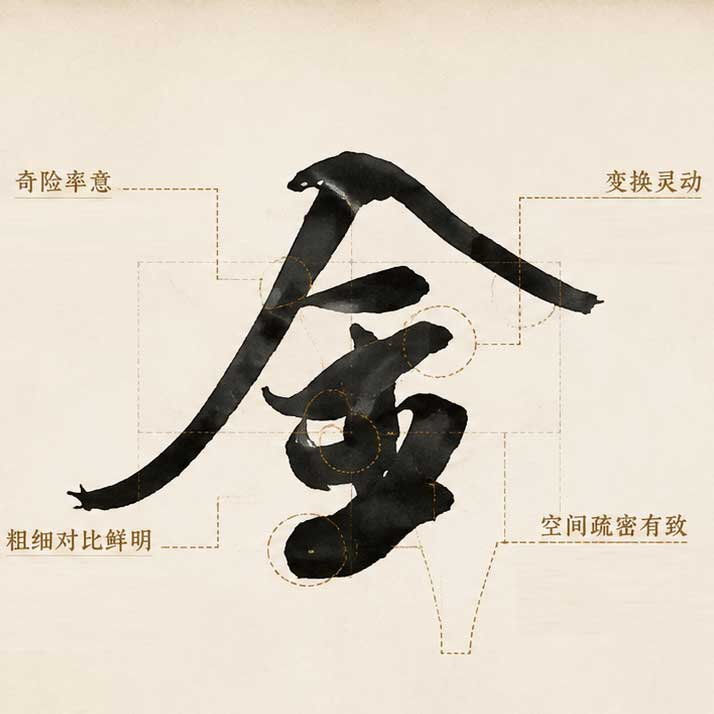 奇险率意
变换灵动
金
粗细对比鲜明
空间疏密有致